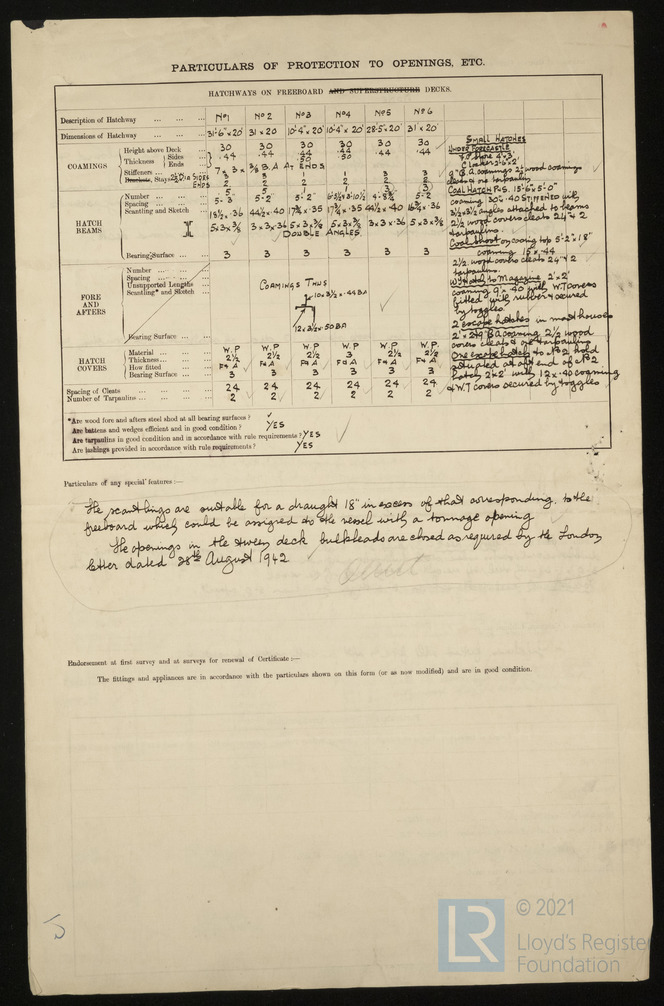 PARTICULARS OF PROTECTION TO OPENINGS, ETC.
HATCHWAYS ON FREEBOARD AND SUPERSTRUCTURE DECKS.
Description of Hatchway ... ... ... No1 No2 No3 No4 No5 No6
Dimensions of Hatchway ... ... ... 31'-6"x20' 31x20 10'-4"x20' 10'-4"x20' 28'-5"x20' 31x20'
COAMINGS
Height above Deck ... 30 30 30 30 30 30
Thickness Sides ... .44 .44 .44 .44 .44 .44
Ends ... .50 .50
Stiffeners ... 7 x 3 x 3/8 B.A AT ENDS
Brackets, Stays 2½ DIA SIDES 3 3 1 1 3 3
ENDS 2 2 1 2 2
HATCH BEAMS
Number ... 5 5 1 1 3 5
Spacing ... 5-3 5-2 5-2 5-2
Scantling and Sketch 44½ x 40 17¾ x 35 17¾ x 35 44½ x 40
5x3x3/8 3x3x36 5x3x3/8 5x3x3/8 3x3x36 5x3x3/8
DOUBLE ANGLES
Bearing Surface ... 3 3 3 3 3 3
FORE AND AFTERS
Number ...
Spacing ...
Unsupported Lengths ...
Scantling* and Sketch
COAMINGS THUS
10x3½x.44 BA
12x3½x.50 BA
Bearing Surface ...
HATCH COVERS
Material ... W.P W.P W.P W.P W.P W.P
Thickness ... 2½ 2½ 2½ 3 2½ 2½
How fitted ... F&A F&A F&A F&A F&A F&A
Bearing Surface ... 3 3 3 3 3 3
Spacing of Cleats ... 24 24 24 24 24 24
Number of Tarpaulins ... 2 2 2 2 2 2
SMALL HATCHES
UNDER FORECASTLE
9" B.A. coamings 2½ wood coaming
COAL HATCH P&S. 15'-6"x5'-0"
coaming 30x.40 STIFFENED with
3½x3½ angles attached to beams
2½ wood covers cleats 24" & 2
tarpaulins.
Coal shoot on casing top 5'-2"x18"
coaming 15x.44
2½ wood covers cleats 24" & 2
tarpaulins.
W.T Hatch to Magazine 2'x2'
coaming 9"x.40 with W.T covers
fitted with rubber & secured
by toggles.
2 escape hatches in mast houses
One escape hatch to No2 hold
situated at aft end of No2
hatch 2'x2' with 12x.40 coaming
& W.T covers secured by toggles
*Are wood fore and afters steel shod at all bearing surfaces? ✓
Are battens and wedges efficient and in good condition? YES
Are tarpaulins in good condition and in accordance with rule requirements? YES
Are lashings provided in accordance with rule requirements? YES
Particulars of any special features :—
The scantlings are suitable for a draught 18" in excess of that corresponding to the
freeboard which could be assigned to the vessel with a tonnage opening
The openings in the tween deck bulkheads are closed as required by the London
letter dated 28th August 1942
Endorsement at first survey and at surveys for renewal of Certificate :—
The fittings and appliances are in accordance with the particulars shown on this form (or as now modified) and are in good condition.
LR
© 2021
Lloyd's Register
Foundation